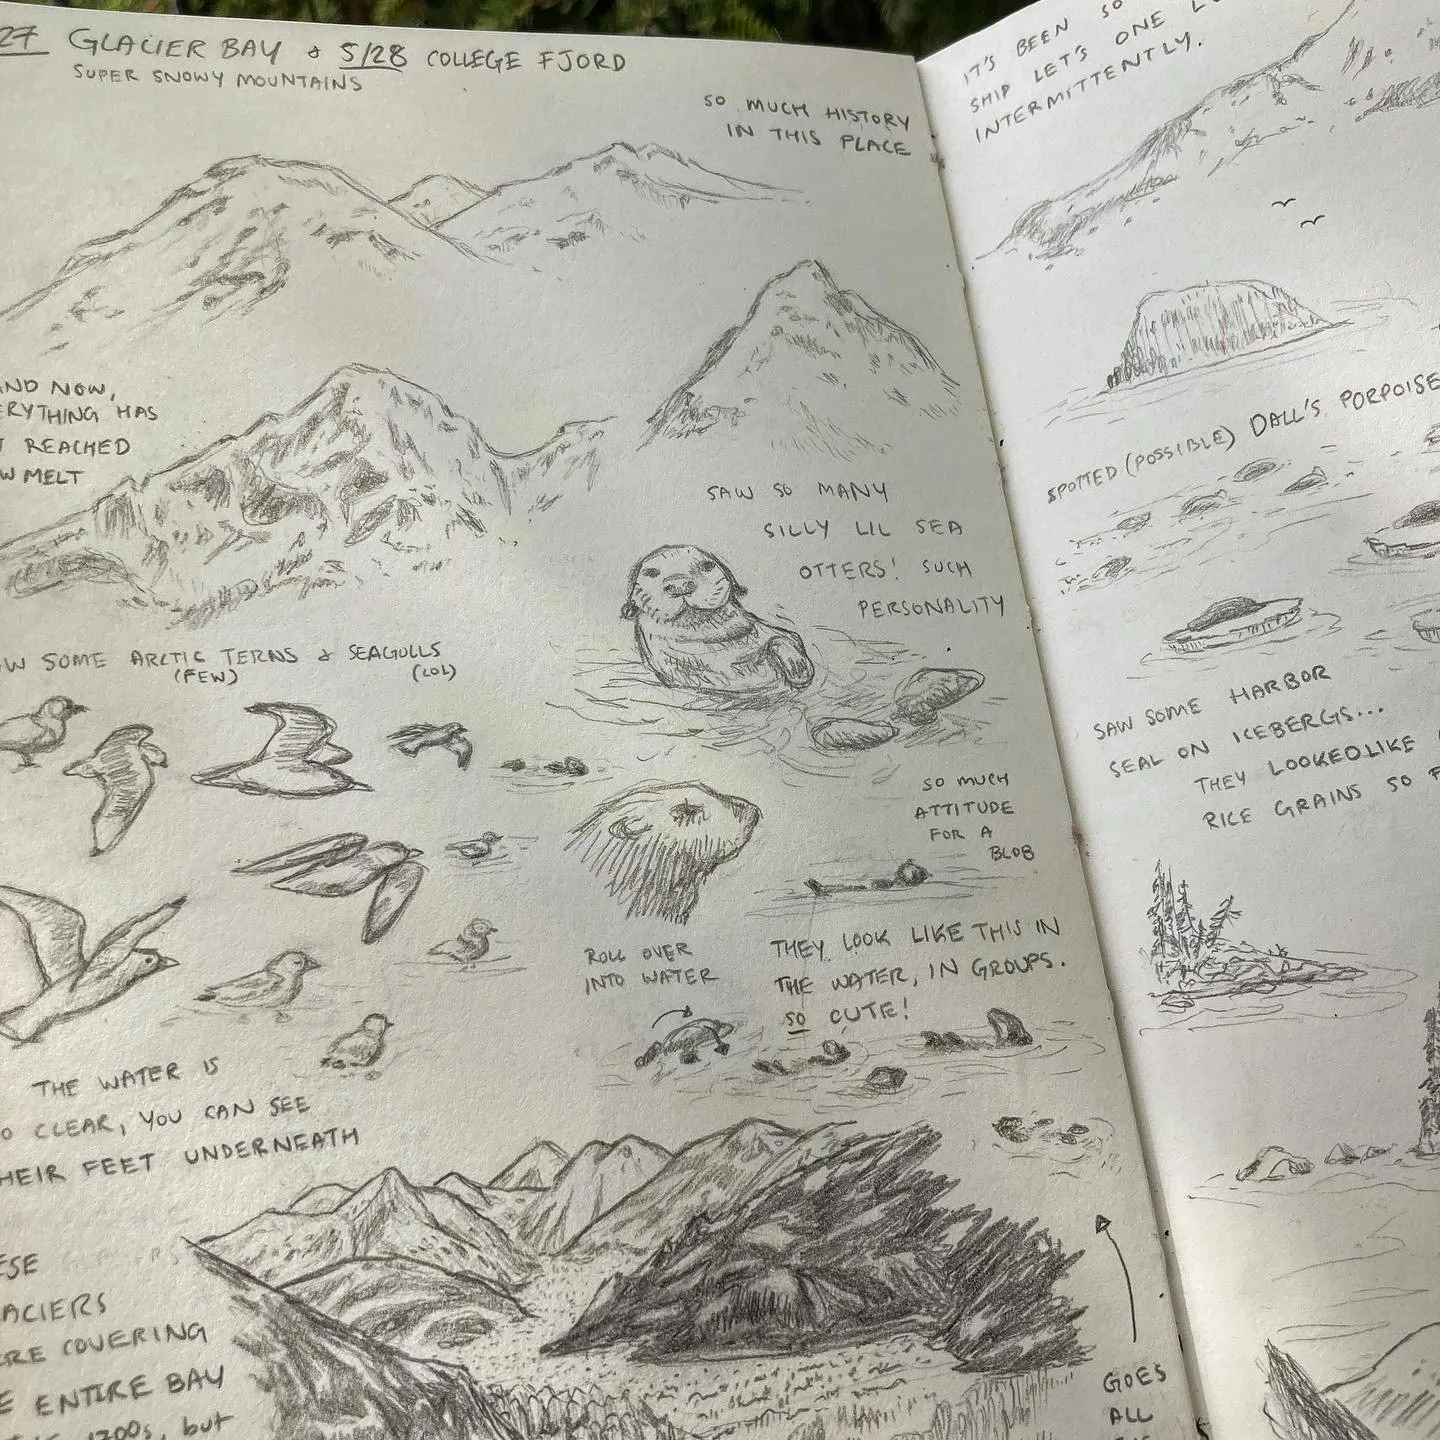 27 GLACIER BAY & 5/28 COLLEGE FJORD
SUPER SNOWY MOUNTAINS
SO MUCH HISTORY
IN THIS PLACE
AND NOW,
HAS
REACHED
MELT
SAW SO MANY
SILLY LIL SEA
OTTERS! SUCH
PERSONALITY
SOME ARCTIC TERNS & SEAGULLS
(FEW) (LOL)
SO MUCH
ATTITUDE
FOR A
BLOB
ROLL OVER
INTO WATER
THEY LOOK LIKE THIS IN
THE WATER, IN GROUPS.
SO CUTE!
THE WATER IS
CLEAR, YOU CAN SEE
FEET UNDERNEATH
COVERING
ENTIRE BAY
1700s, but
GOES
ALL
IT'S BEEN SO
SHIP LET'S ONE
INTERMITTENTLY.
SPOTTED (POSSIBLE) DALL'S PORPOISE
SAW SOME HARBOR
SEAL ON ICEBERGS...
THEY LOOKED LIKE
RICE GRAINS SO